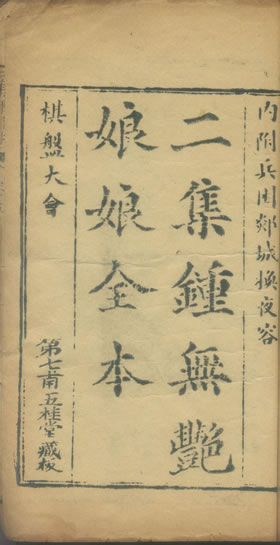 内附兵困城換夜容
二集鍾無豔
娘娘全本
棋盤大會
第七甫五桂堂藏板